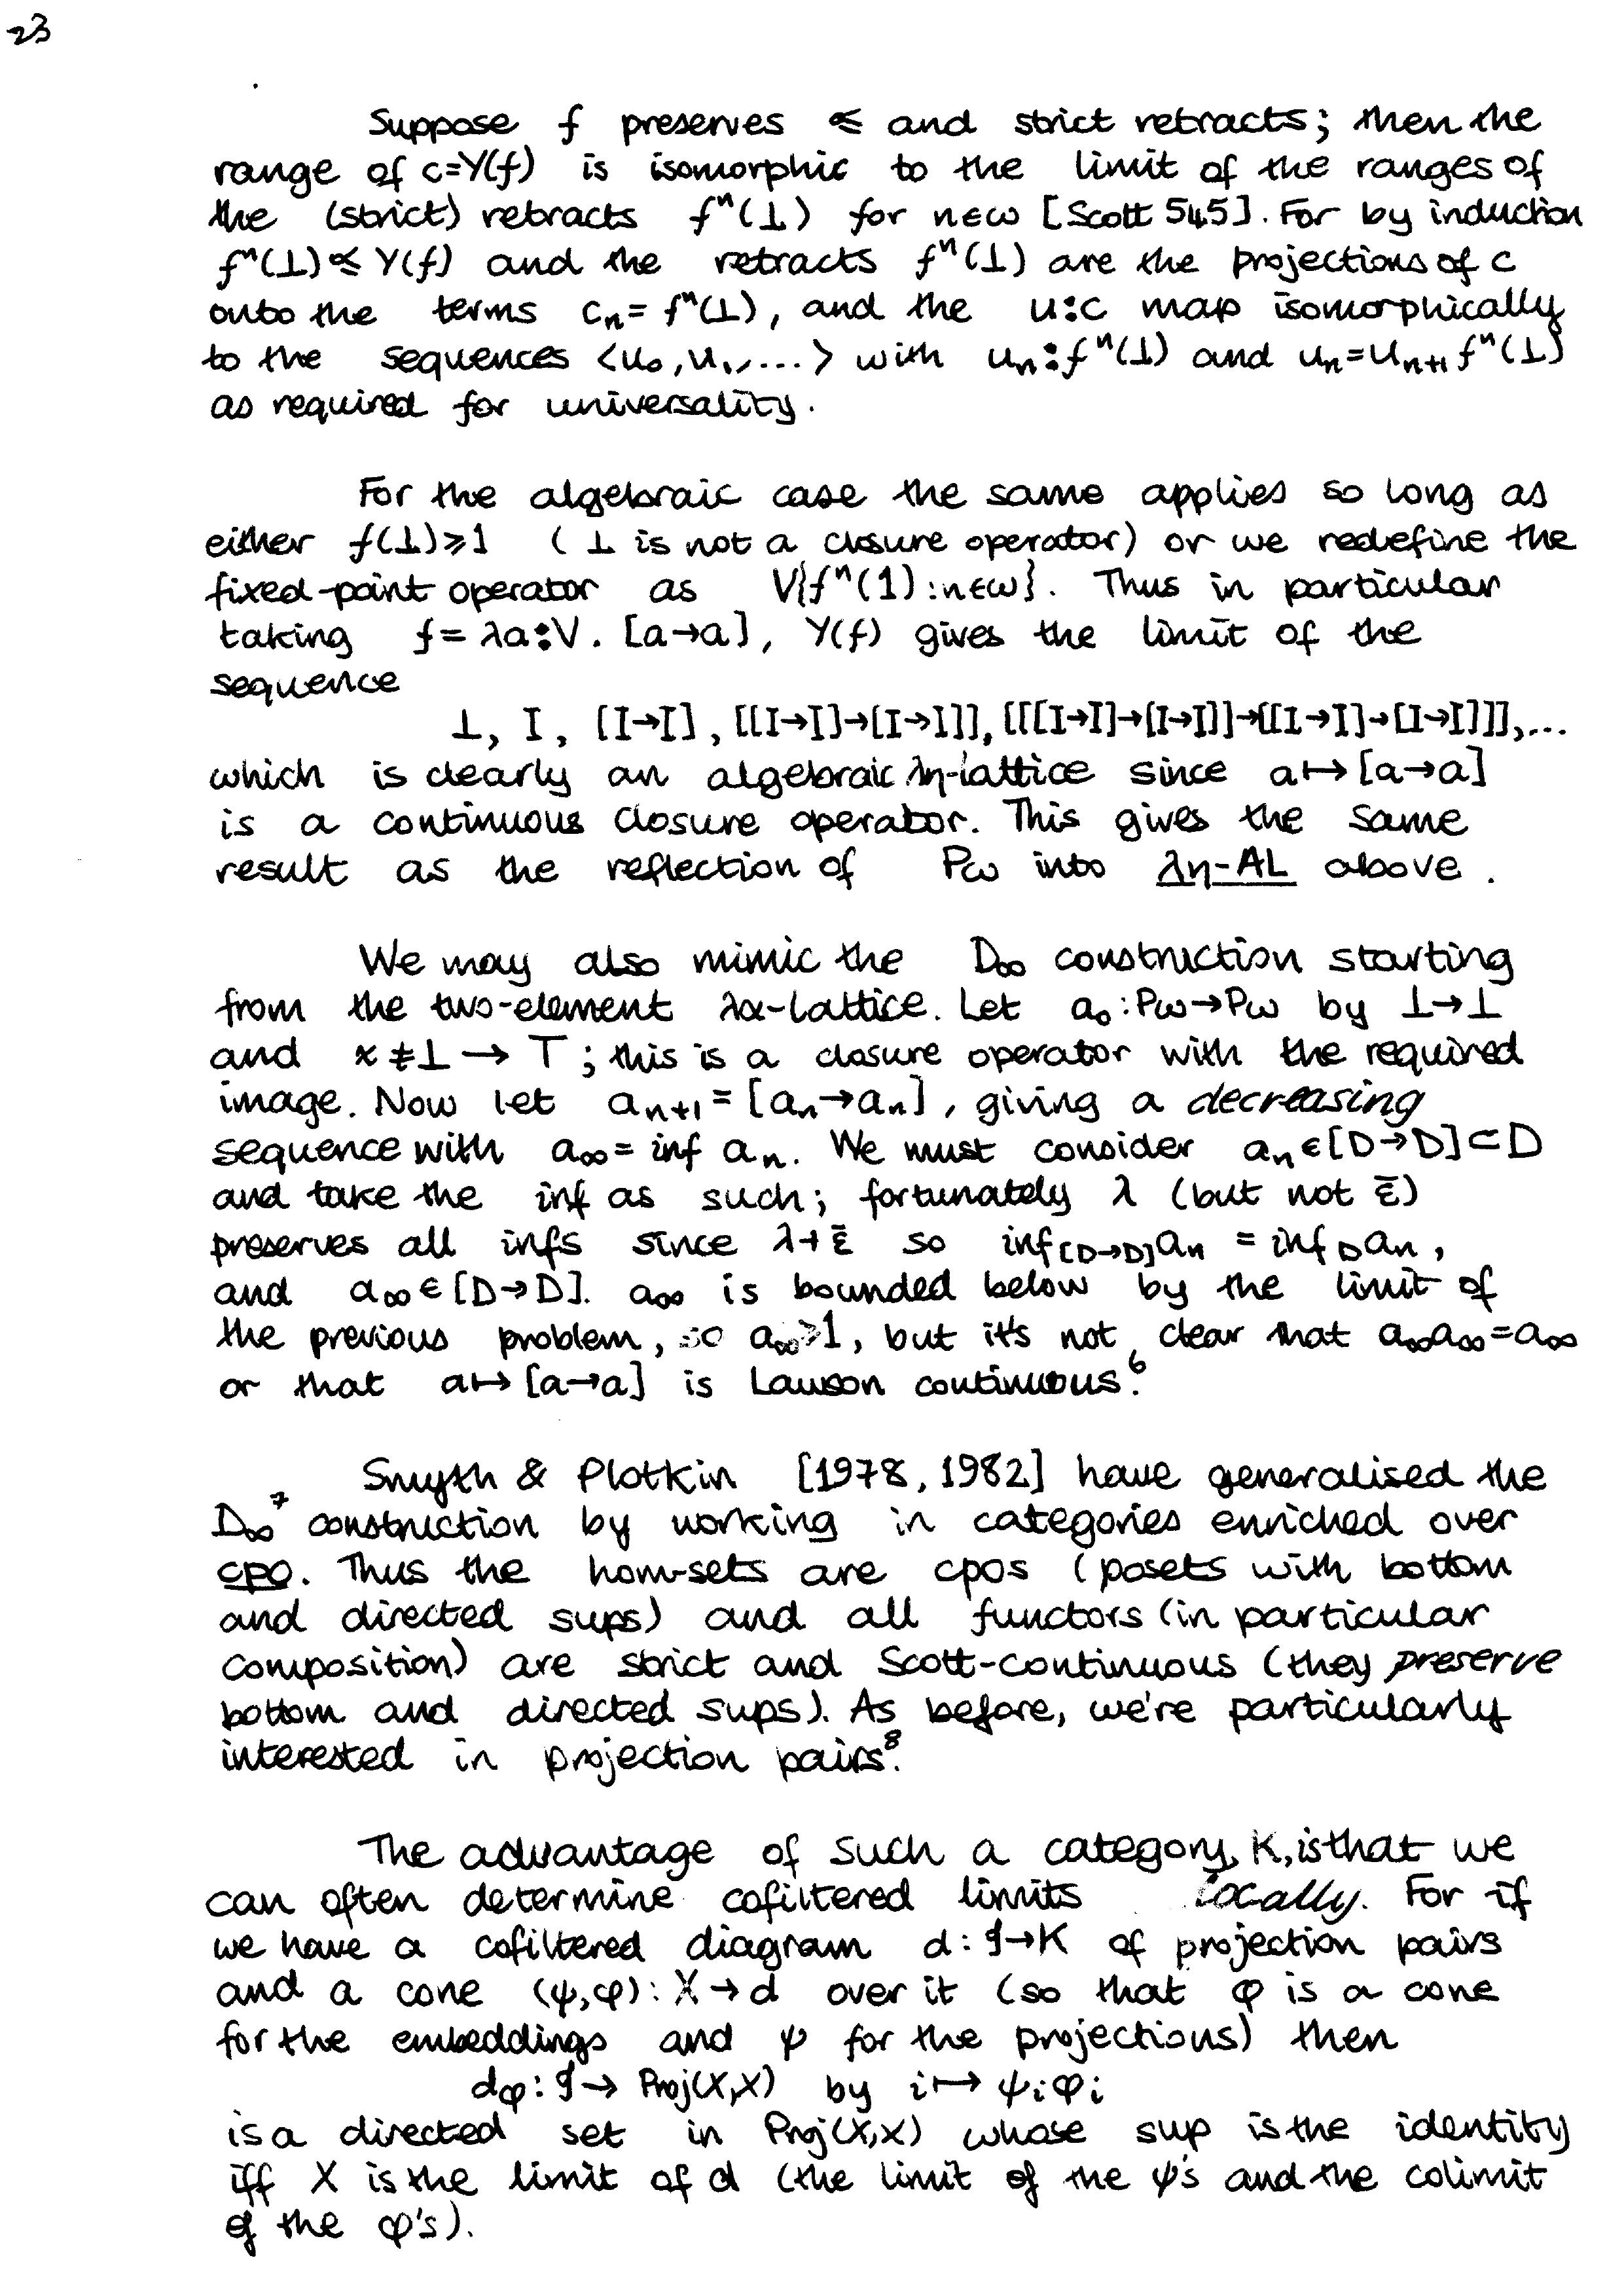 23
Suppose f preserves ⩽ and strict retracts; then the
range of c=Y(f) is isomorphic to the limit of the ranges of
the (strict) retracts fⁿ(⊥) for n∈ω [Scott 545]. For by induction
fⁿ(⊥)⩽Y(f) and the retracts fⁿ(⊥) are the projections of c
onto the terms cₙ= fⁿ(⊥), and the u:c map isomorphically
to the sequences <u₀,u₁,...> with uₙ:fⁿ(⊥) and uₙ=uₙ₊₁fⁿ(⊥)
as required for universality.
For the algebraic case the same applies so long as
either f(⊥)⩾1 (⊥ is not a closure operator) or we redefine the
fixed-point operator as V{fⁿ(1):n∈ω}. Thus in particular
taking f= λa:V. [a→a], Y(f) gives the limit of the
sequence
⊥, I, [I→I], [[I→I]→[I→I]], [[[I→I]→[I→I]]→[[I→I]→[I→I]]],...
which is clearly an algebraic λη-lattice since a↦[a→a]
is a continuous closure operator. This gives the same
result as the reflection of Pω into λη-AL above.
We may also mimic the D∞ construction starting
from the two-element λα-lattice. Let a₀:Pω→Pω by ⊥→⊥
and x≠⊥→ T; this is a closure operator with the required
image. Now let aₙ₊₁=[aₙ→aₙ], giving a decreasing
sequence with a∞= inf aₙ. We must consider aₙ∈[D→D]⊂D
and take the inf as such; fortunately λ (but not ε̄)
preserves all infs since λ⊣ε̄ so inf[D→D]aₙ = inf D aₙ,
and a∞∈[D→D]. a∞ is bounded below by the limit of
the previous problem, so a∞⩾1, but it's not clear that a∞a∞=a∞
or that a↦[a→a] is Lawson continuous.⁶
Smyth & Plotkin [1978, 1982] have generalised the
D∞⁷ construction by working in categories enriched over
cpo. Thus the hom-sets are cpos (posets with bottom
and directed sups) and all functors (in particular
composition) are strict and Scott-continuous (they preserve
bottom and directed sups). As before, we're particularly
interested in projection pairs.⁸
The advantage of such a category, K, is that we
can often determine cofiltered limits locally. For if
we have a cofiltered diagram d:𝓘→K of projection pairs
and a cone (ψ,φ):X→d over it (so that φ is a cone
for the embeddings and ψ for the projections) then
dφ:𝓘→ Proj(X,X) by i↦ ψᵢφᵢ
is a directed set in Proj(X,X) whose sup is the identity
iff X is the limit of d (the limit of the ψ's and the colimit
of the φ's).